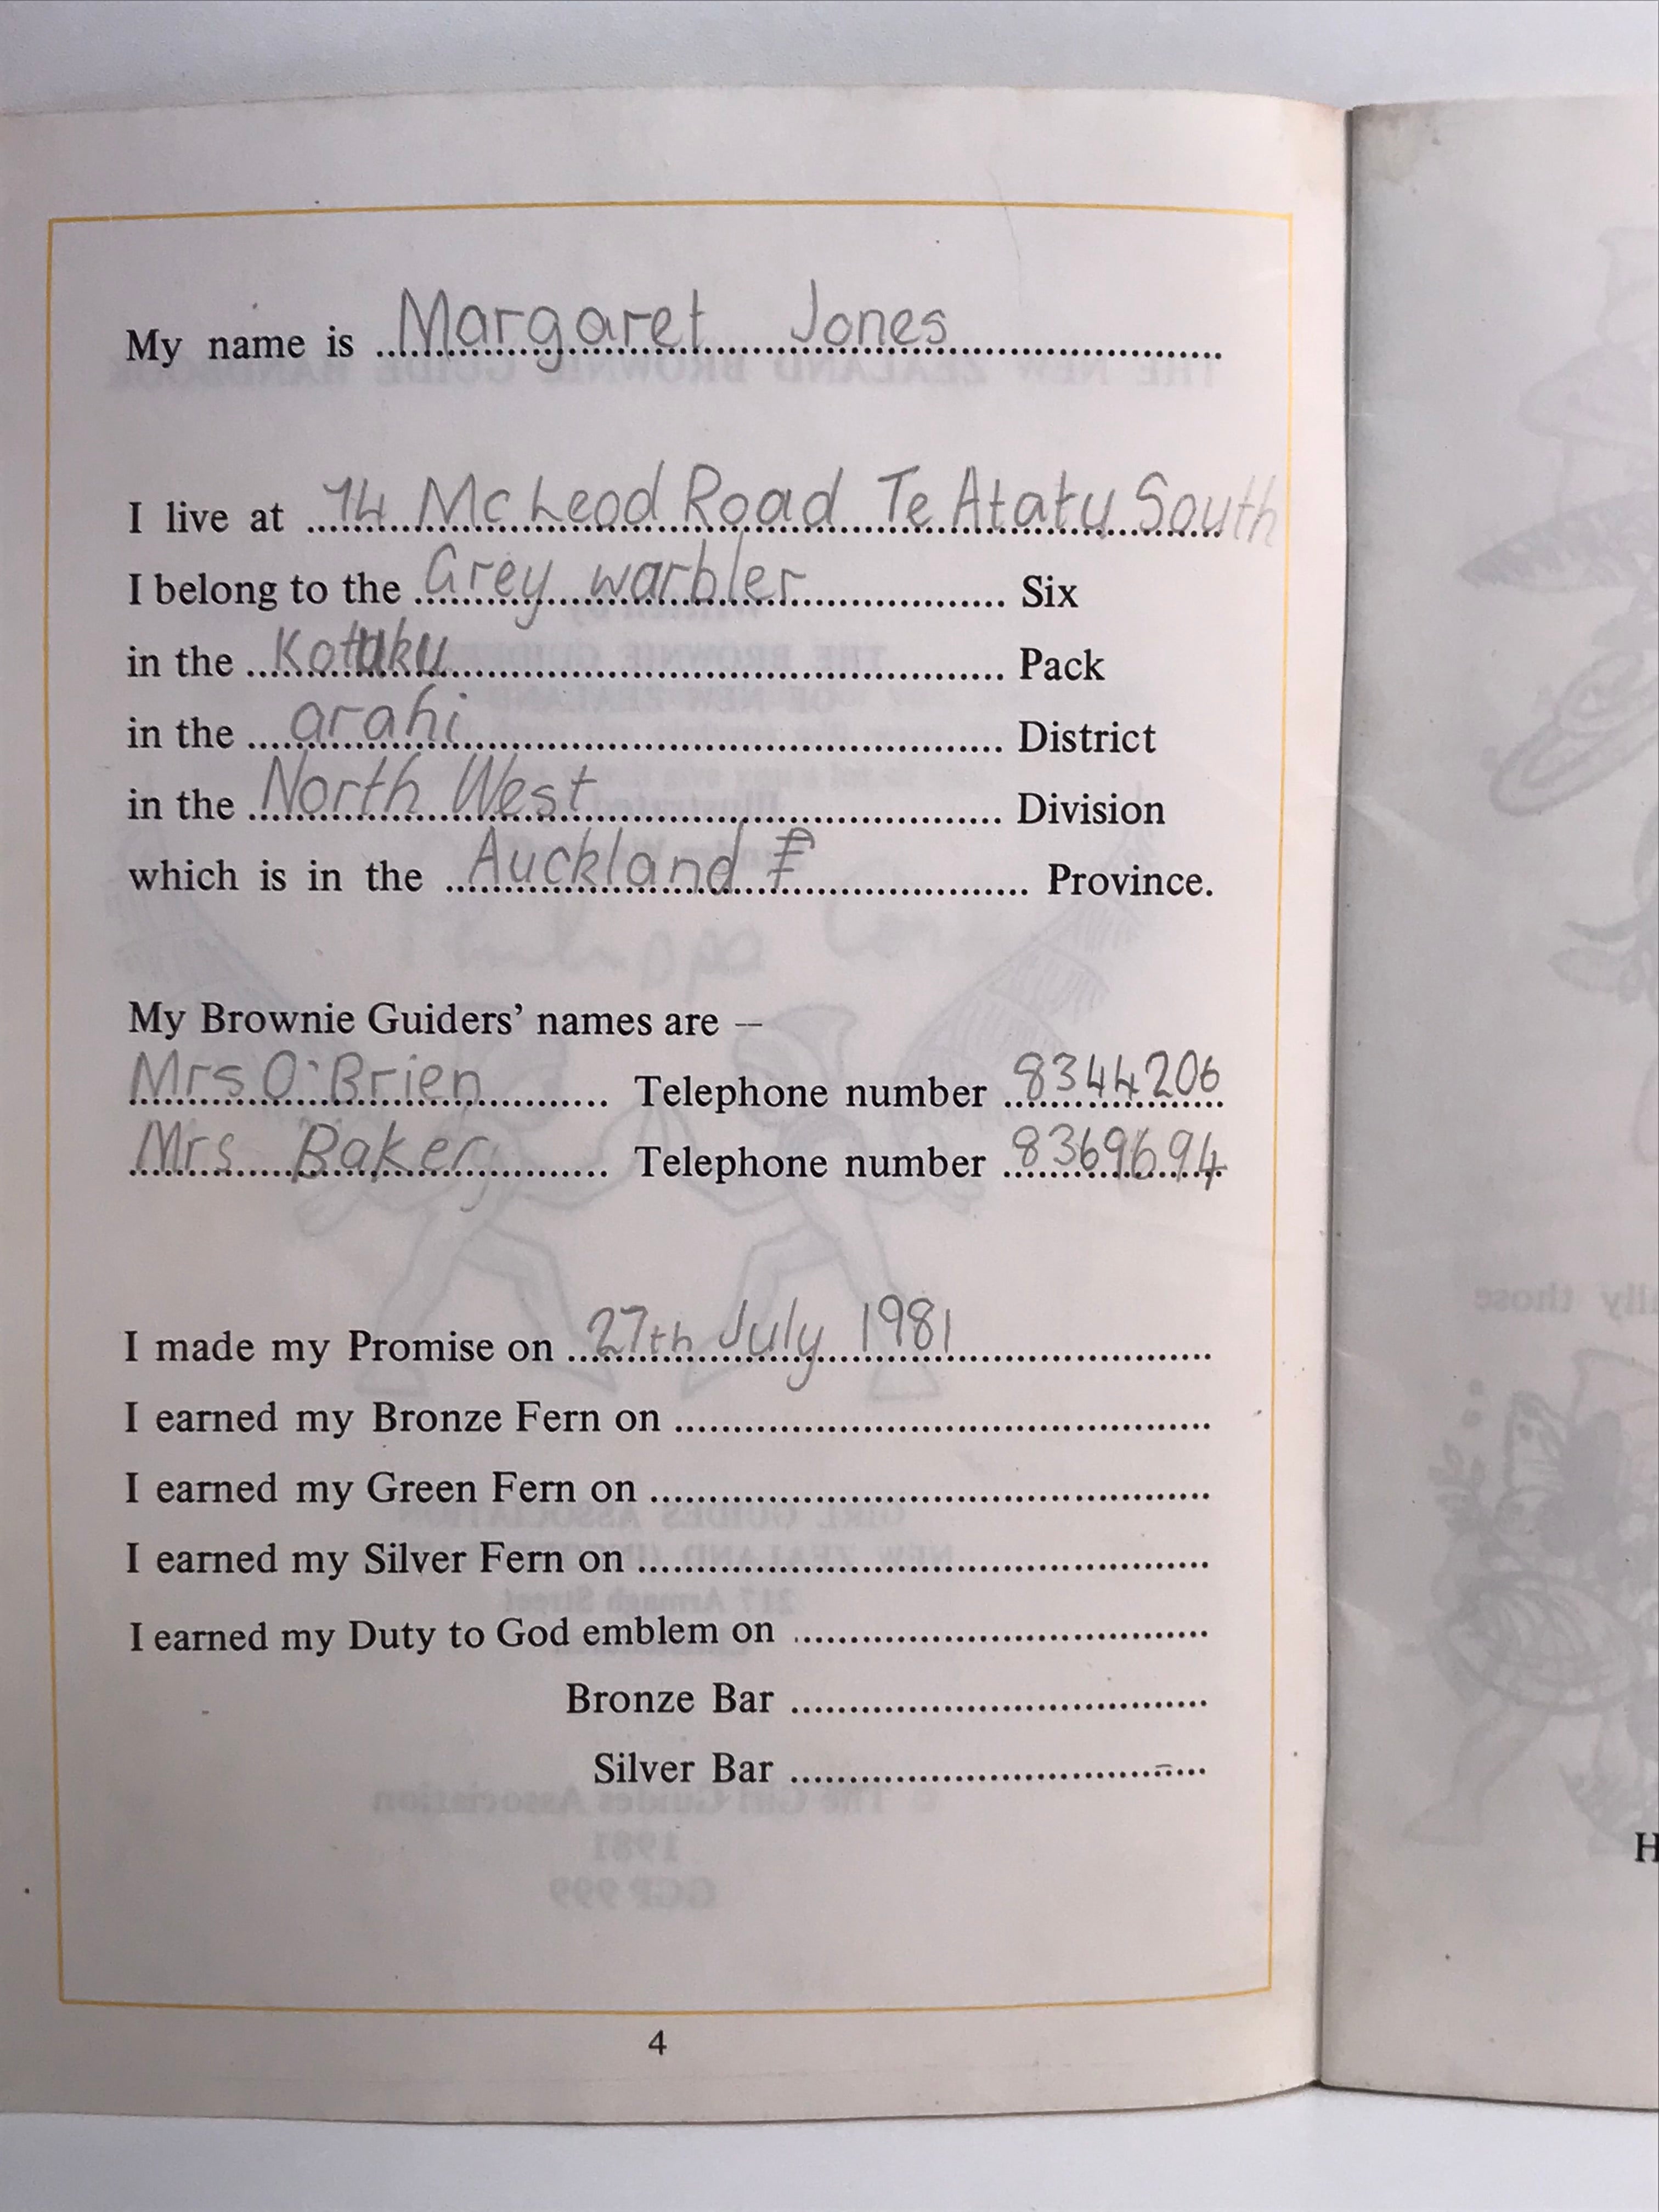 My name is Margaret Jones
I live at 74 McLeod Road Te Atatu South
I belong to the Grey warbler Six
in the Kotuku Pack
in the arahi District
in the North West Division
which is in the Auckland Province.
My Brownie Guiders' names are –
Mrs O'Brien Telephone number 8344206
Mrs. Baker Telephone number 8369694
I made my Promise on 27th July 1981
I earned my Bronze Fern on
I earned my Green Fern on
I earned my Silver Fern on
I earned my Duty to God emblem on
Bronze Bar
Silver Bar
4
H